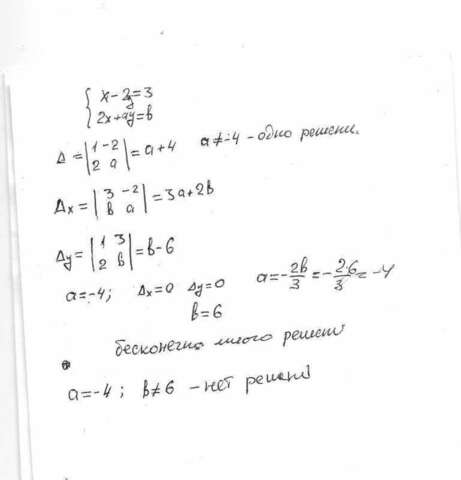 { x - 2y = 3
{ 2x + ay = b
Δ = |1 -2; 2 a| = a + 4 a ≠ -4 - одно решени.
Δx = |3 -2; b a| = 3a + 2b
Δy = |1 3; 2 b| = b - 6
a = -4; Δx = 0 Δy = 0 a = -2b/3 = -2·6/3 = -4
b = 6
бесконечно много решени
a = -4; b ≠ 6 - нет решени